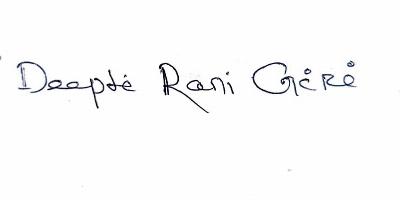 Deepti Rani Giri